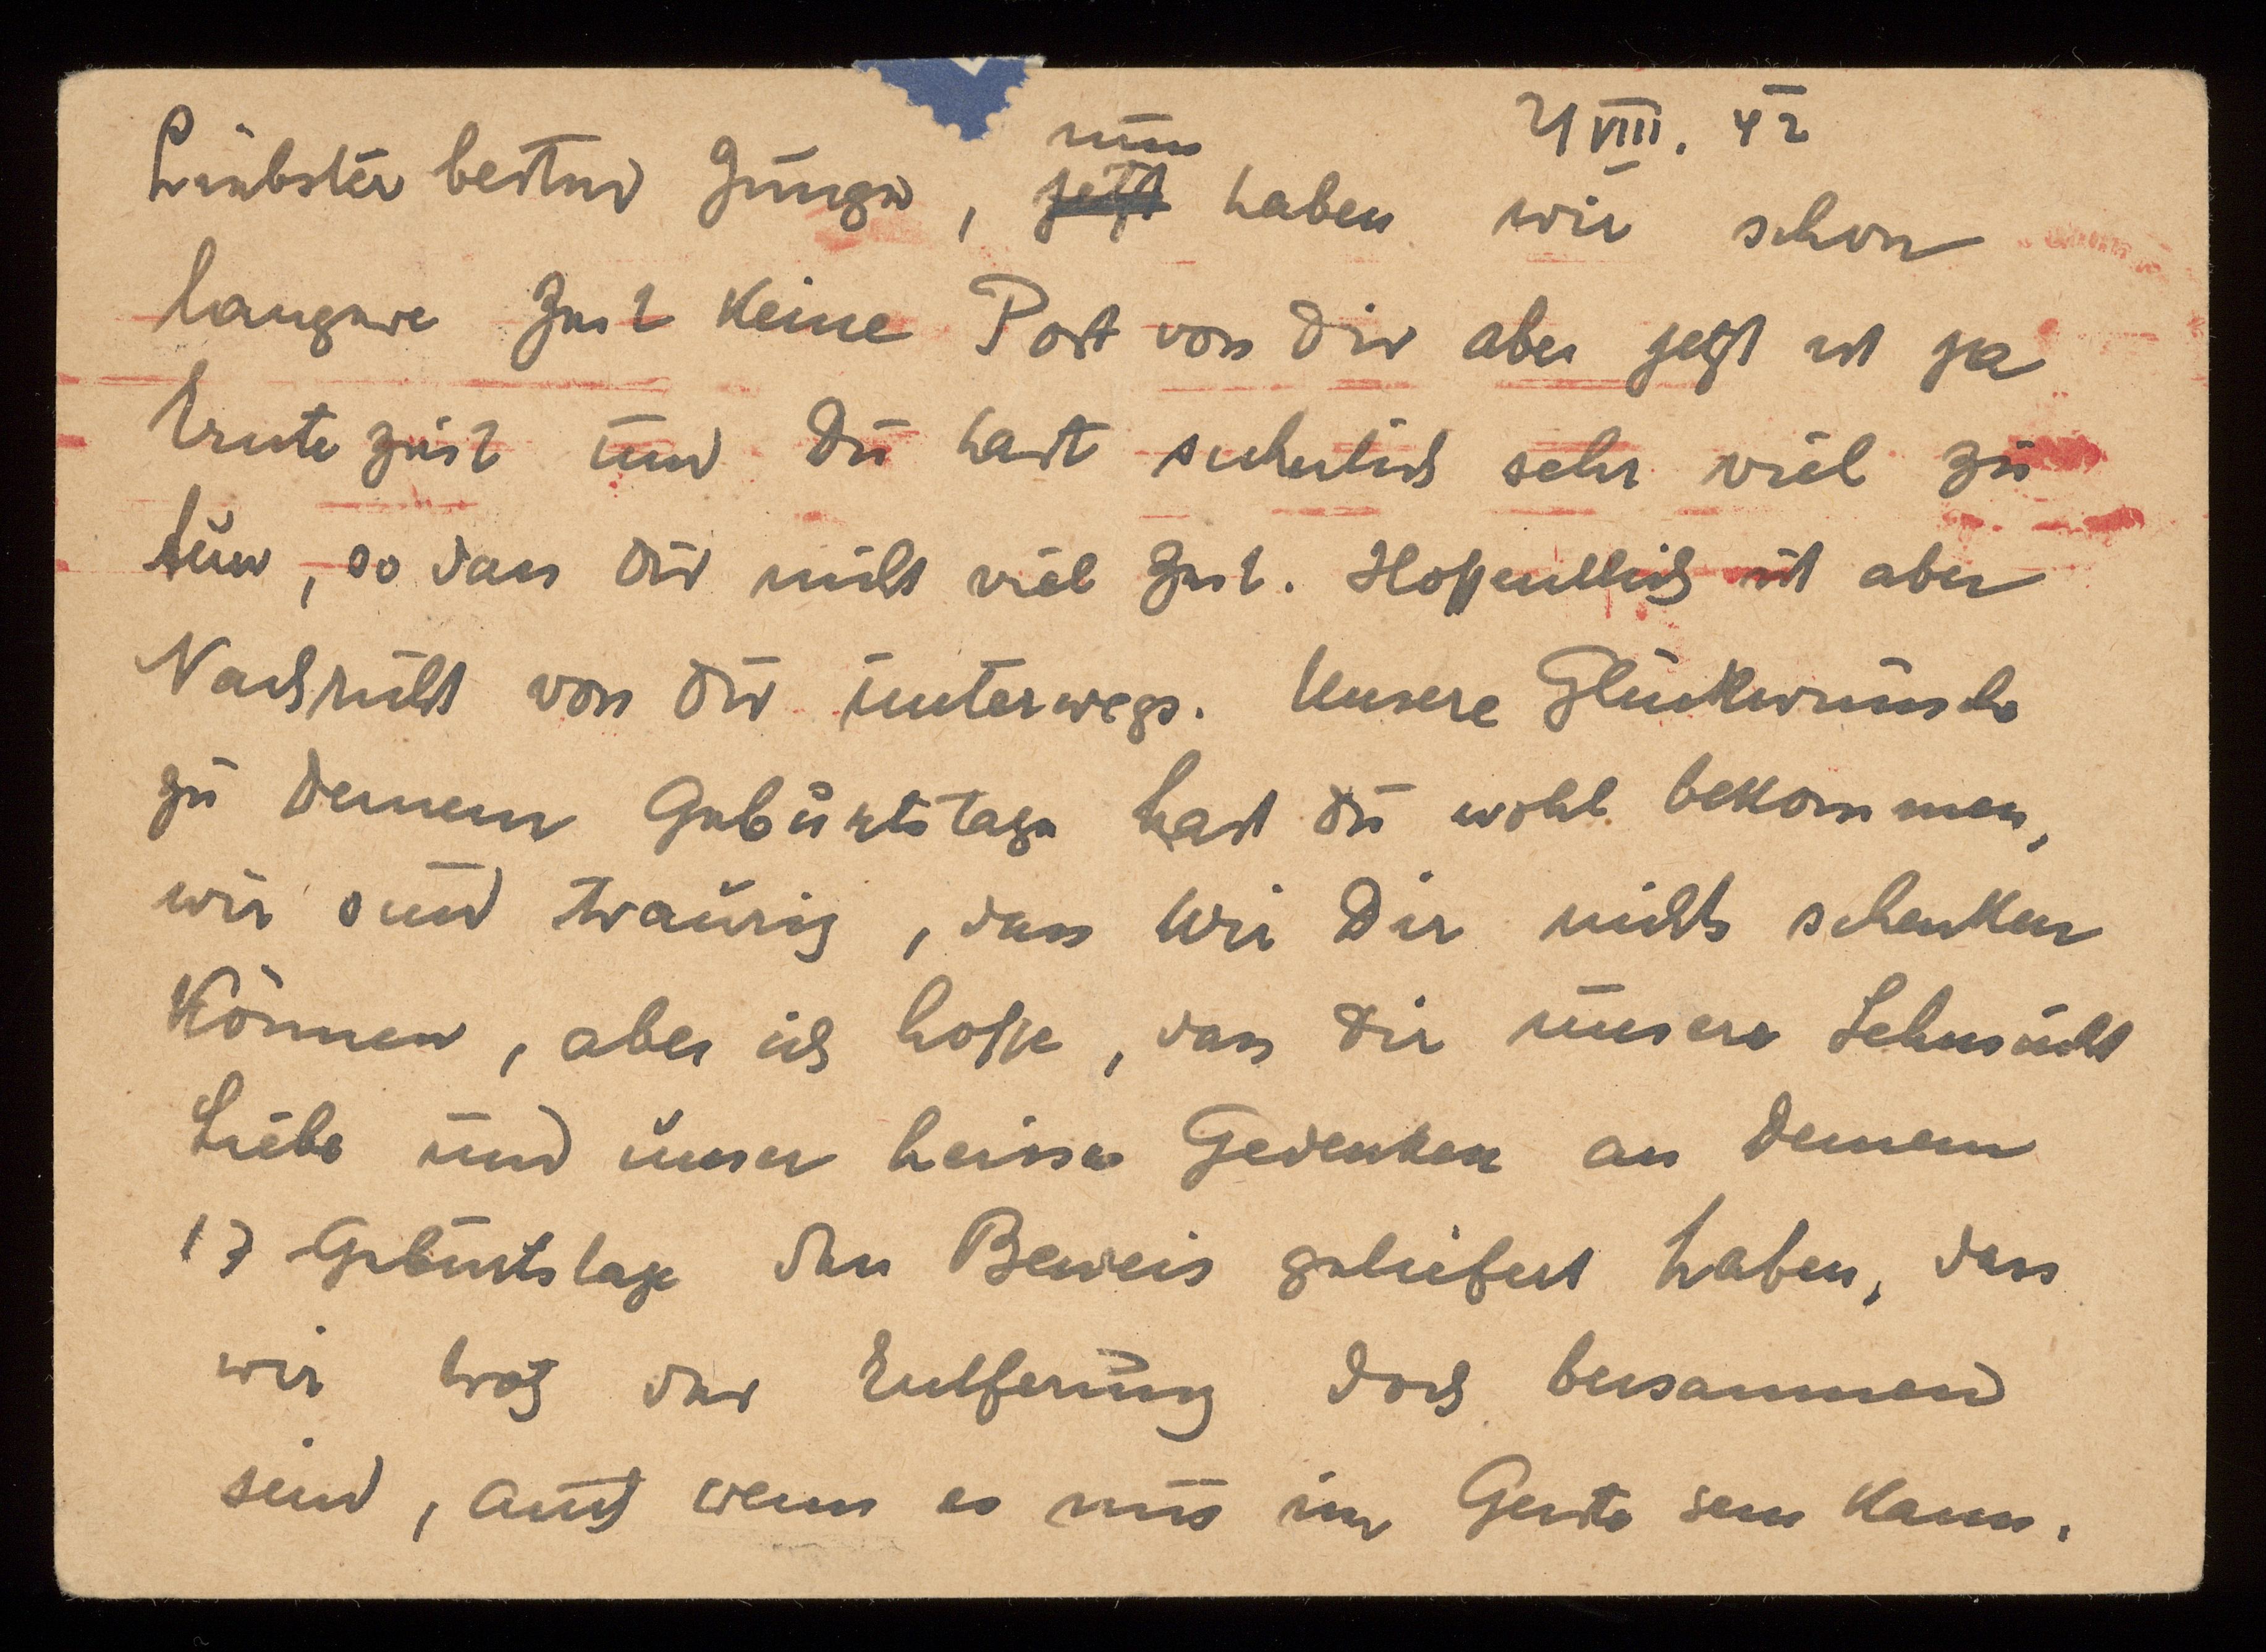 21 VIII. 42
Liebster bester Junge, nun haben wir schon
längere Zeit keine Post von Dir aber jetzt ist ja
Erntezeit und Du hast sicherlich sehr viel zu
tun, so dass Dir nicht viel Zeit. Hoffentlich ist aber
Nachricht von Dir unterwegs. Unsere Glückwünsche
zu Deinem Geburtstage hast Du wohl bekommen,
wir sind traurig, dass wir Dir nichts schenken
können, aber ich hoffe, dass Dir unsere Sehnsucht
Liebe und unser heisses Gedenken an Deinem
17 Geburtstage den Beweis geliefert haben, dass
wir trotz der Entfernung doch beisammen
sind, auch wenn es nur im Geiste sein kann.